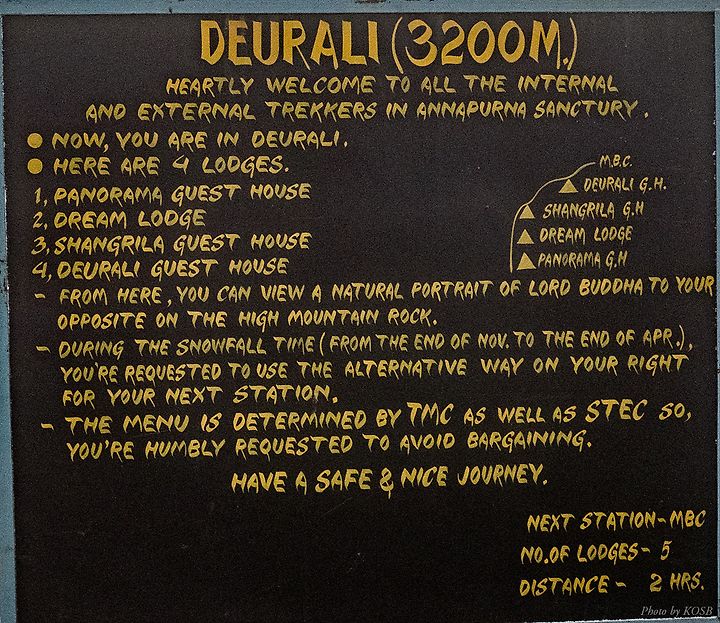 DEURALI (3200M.)
HEARTLY WELCOME TO ALL THE INTERNAL
AND EXTERNAL TREKKERS IN ANNAPURNA SANCTURY.
NOW, YOU ARE IN DEURALI.
HERE ARE 4 LODGES.
1, PANORAMA GUEST HOUSE
2. DREAM LODGE
3, SHANGRILA GUEST HOUSE
4, DEURALI GUEST HOUSE
M.B.C.
DEURALI G.H.
SHANGRILA G.H
DREAM LODGE
PANORAMA G.H
- FROM HERE, YOU CAN VIEW A NATURAL PORTRAIT OF LORD BUDDHA TO YOUR
OPPOSITE ON THE HIGH MOUNTAIN ROCK.
- DURING THE SNOWFALL TIME (FROM THE END OF NOV. TO THE END OF APR.),
YOU'RE REQUESTED TO USE THE ALTERNATIVE WAY ON YOUR RIGHT
FOR YOUR NEXT STATION.
- THE MENU IS DETERMINED BY TMC AS WELL AS STEC SO,
YOU'RE HUMBLY REQUESTED TO AVOID BARGAINING.
HAVE A SAFE & NICE JOURNEY.
NEXT STATION - MBC
NO. OF LODGES - 5
DISTANCE - 2 HRS.
Photo by KOSB